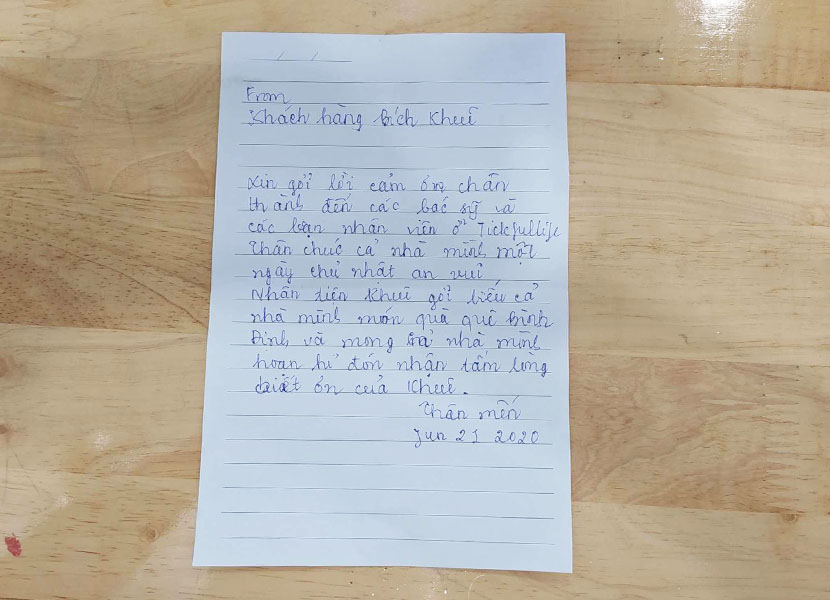 / /
From
Khách hàng Bích Khuê
Xin gởi lời cảm ơn chân
thành đến các bác sỹ và
các bạn nhân viên ở Tickfullife
Thân chúc cả nhà mình một
ngày chủ nhật an vui
Nhân tiện Khuê gởi biếu cả
nhà mình món quà quê Bình
Định và mong cả nhà mình
hoan hỉ đón nhận tấm lòng
biết ơn của Khuê.
Thân mến
Jun 21 2020